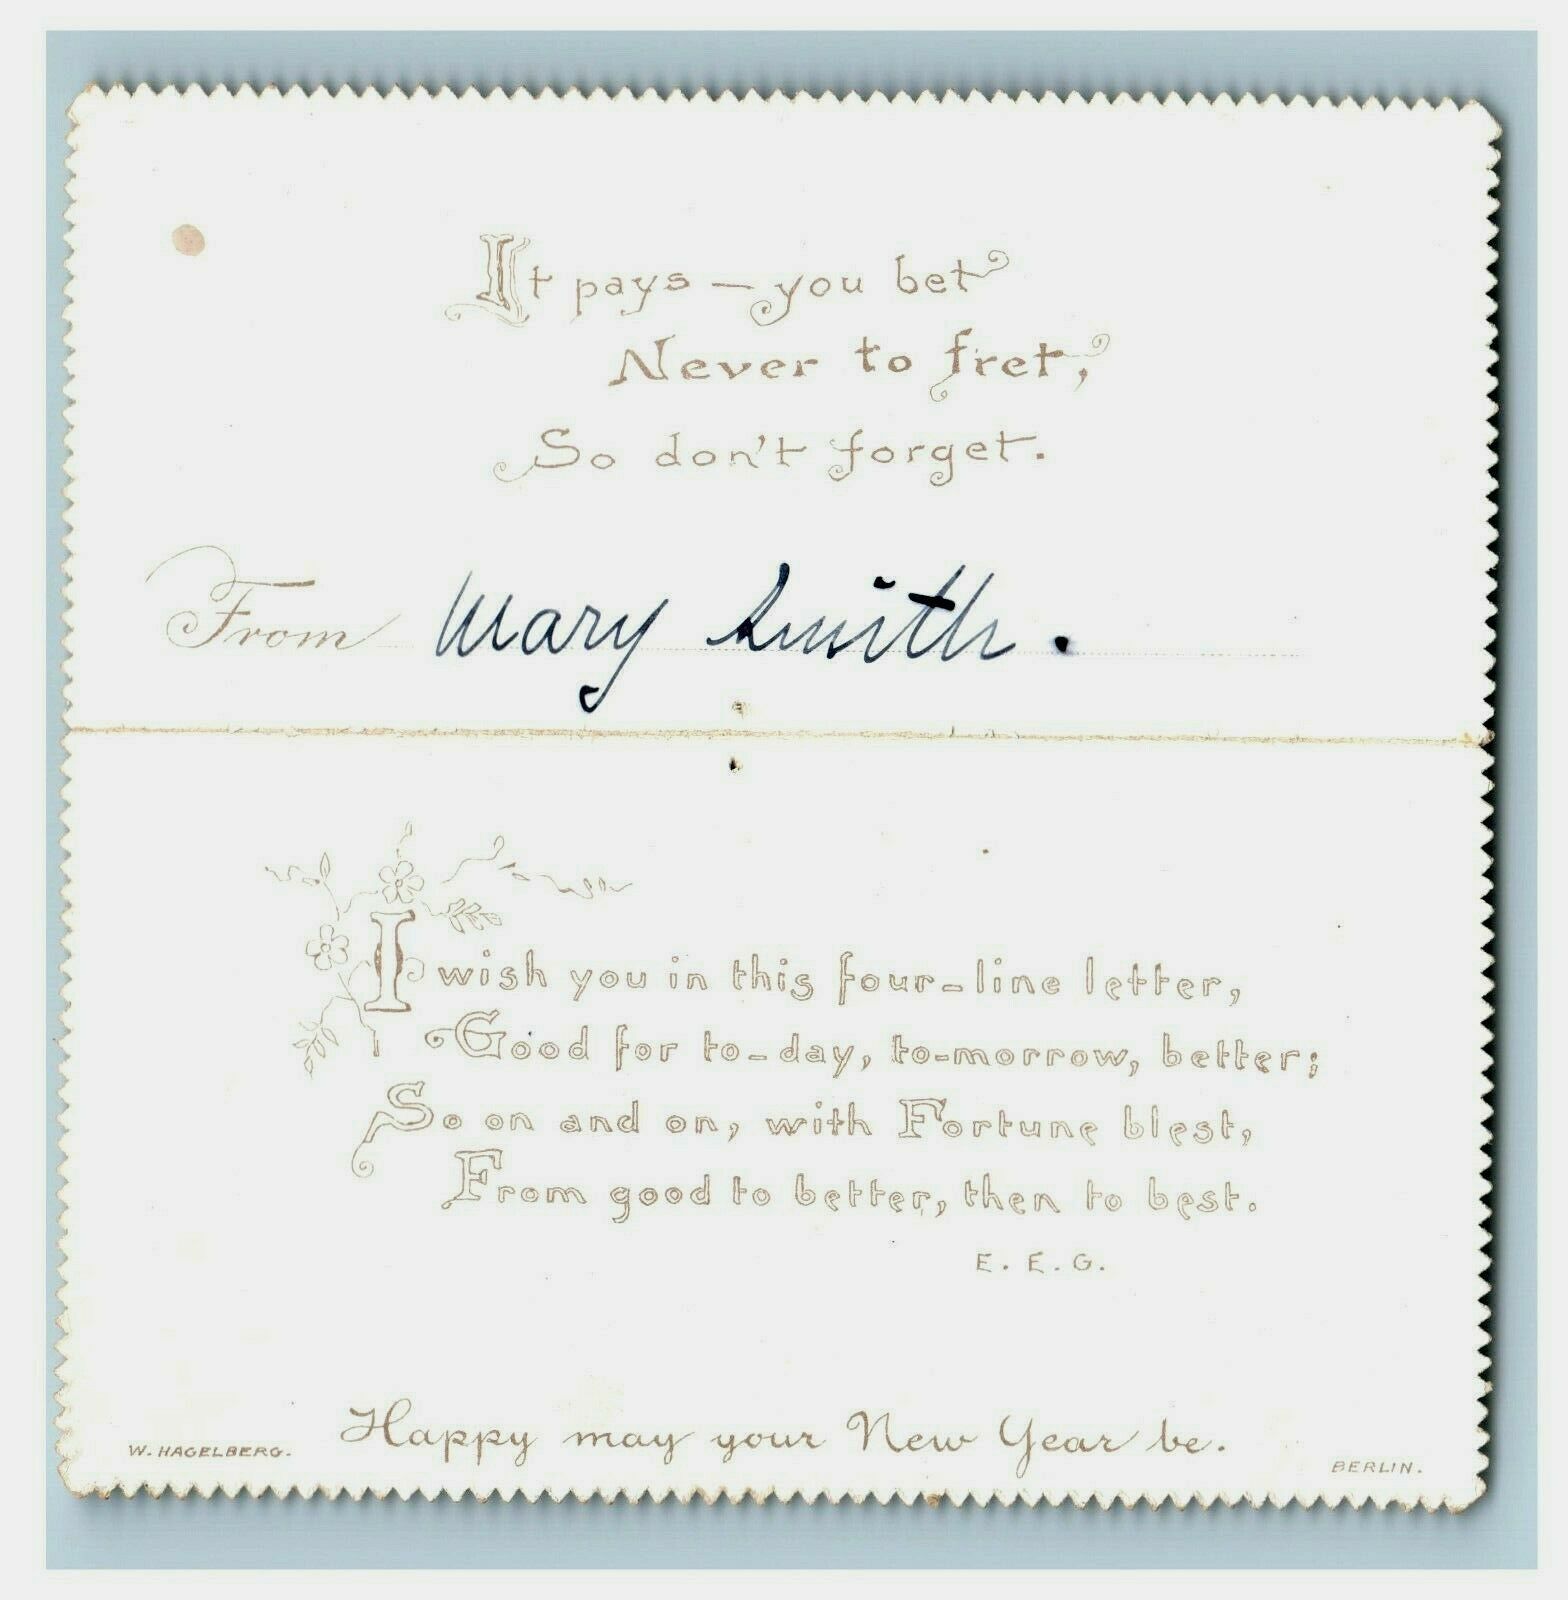 It pays — you bet
Never to fret,
So don't forget.
From Mary Smith.
I wish you in this four-line letter,
Good for to-day, to-morrow, better;
So on and on, with Fortune blest,
From good to better, then to best.
E. E. G.
Happy may your New Year be.
W. HAGELBERG.
BERLIN.